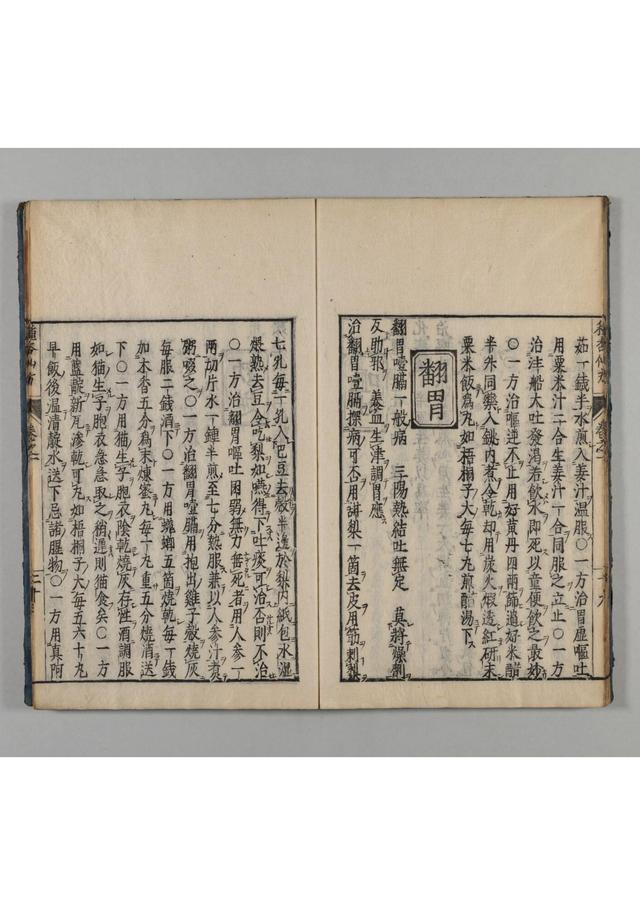 茹一錢半水煎入姜汁溫服〇一方治胃虛嘔吐
用粟米汁二合生姜汁一合同服之立止〇一方
治注船大吐發渴若飲水即死以童便飲之最妙
〇一方治嘔逆不止用好黃丹四兩篩過好米醋
半升同藥入銚內煮令乾却用炭火煆透紅研末
粟米飯為丸如梧桐子大每七丸煎醋湯下
翻胃
翻胃噎膈一般病 三陽熱結吐無定 莫將燥劑
反助邪 養血生津調胃應
治翻胃噎膈探病可否用甜梨一箇去皮用筯刺梨
七孔每一孔入巴豆去殼半邊於梨內紙包水濕
煨熟去豆令吃梨如嚥得下吐痰可治否則不治
〇一方治翻胃嘔吐困弱無力垂死者用人參一
兩切片水一鍾半煎至七分熱服兼以人參汁煮
粥啜之〇一方治翻胃噎膈用抱出雞子殼燒灰
每服二錢酒下〇一方用蜣螂五箇燒乾每一錢
加木香五分為末煉蜜丸每一丸重五分燒酒送
下〇一方用猫生子胞衣陰乾燒灰存性酒調服
如猫生子胞衣急急取之稍遲則猫食矣〇一方
用藍靛新瓦滲乾可丸如梧桐子大每五六十丸
早飯後溫清靛水送下忌諸腥物〇一方用真阿
種杏仙方
卷之二